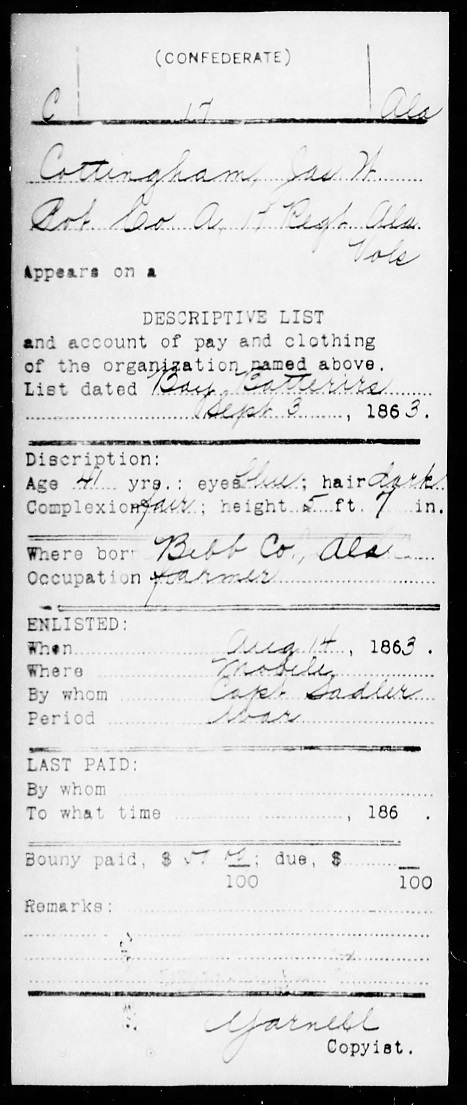 (CONFEDERATE)
C 17 Ala
Cottingham, Jas W.
Pvt Co A, 17 Regt Ala.
Vols
Appears on a
DESCRIPTIVE LIST
and account of pay and clothing
of the organization named above.
List dated Bay Batteries
Sept 3, 1863.
Discription:
Age 41 yrs.: eyes blue; hair dark
Complexion fair; height 5 ft. 7 in.
Where born Bibb Co., Ala.
Occupation farmer
ENLISTED:
When Aug 14, 1863.
Where Mobile
By whom Capt Sadler
Period war
LAST PAID:
By whom
To what time , 186 .
Bouny paid, $ ; due, $
100 100
Remarks:
Yarnell
Copyist.